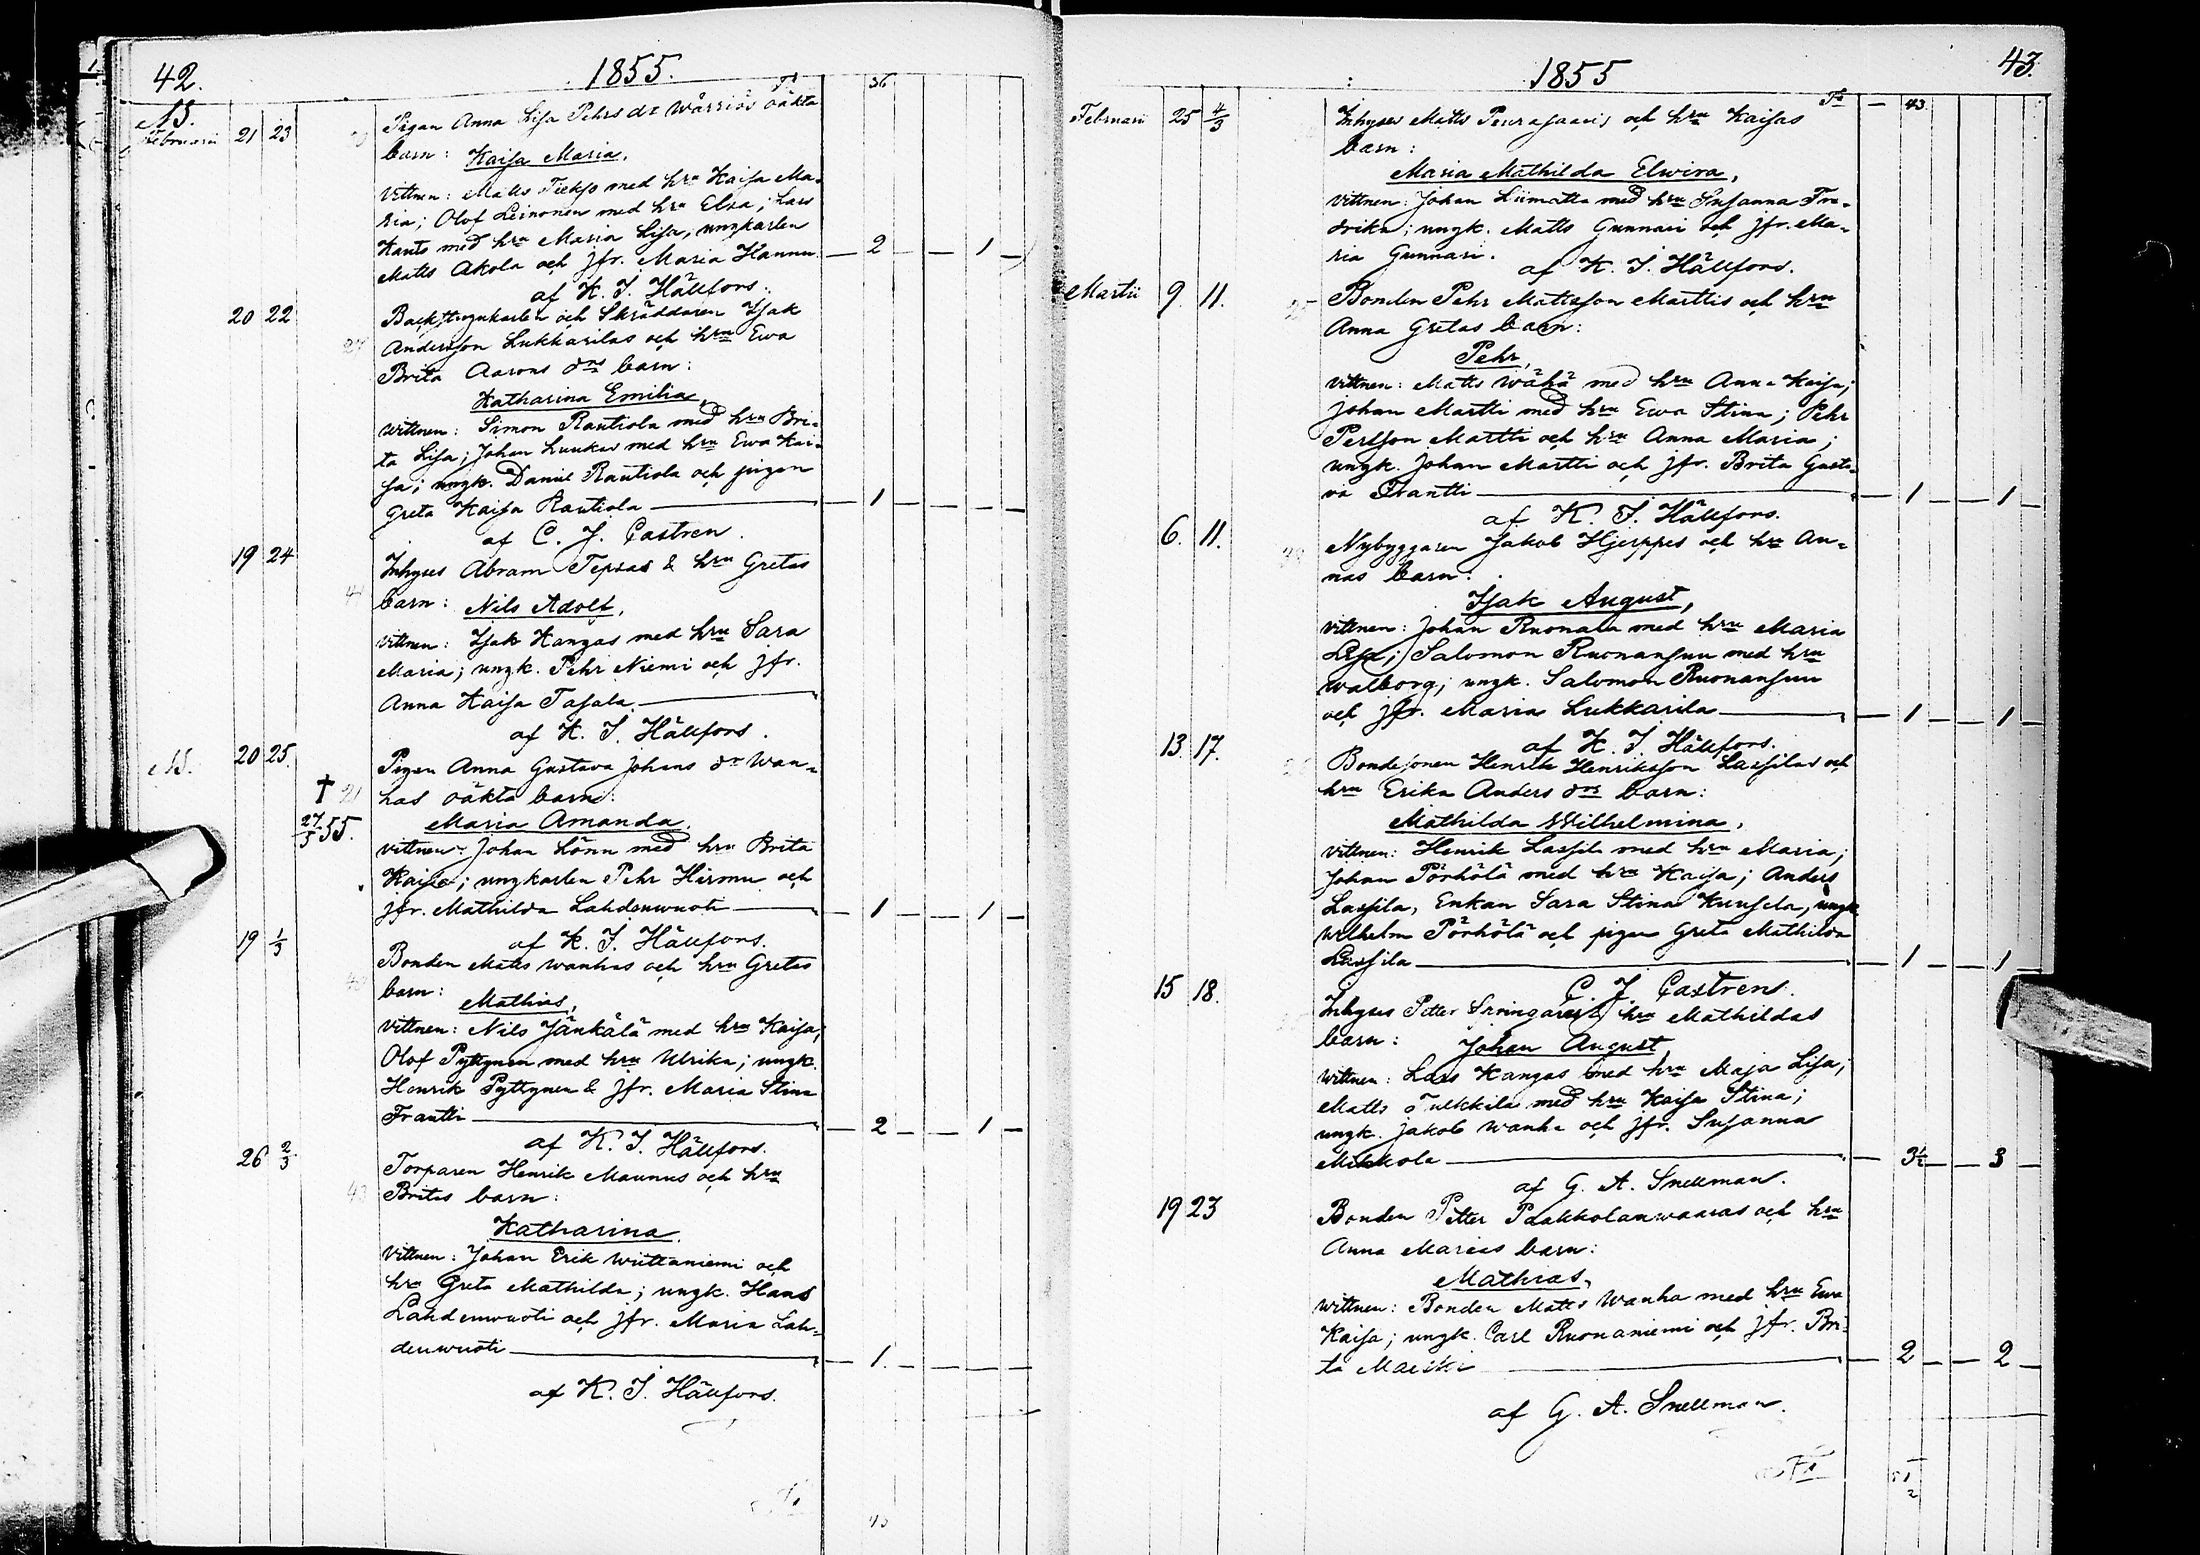 42.
1855.
Tr
36
NB.
Februarii 21 23
Pigan Anna Lisa Pehrs dr Wärriös oäkta
barn: Kaisa Maria.
Vittnen: Matts Tiekso med hru Kaisa Ma-
ria; Olof Leinonen med hru Elsa; Lars
Kauts med hru Maria Lisa, ungkarlen
Matts Akola och jfr. Maria Hannu. — 2 — — 1
af K. J. Hällfors.
20 22
Backstugukarlen och Skräddaren Isak
Andersson Lukkarilas och hru Ewa
Brita Aarons drs barn:
Katharina Emilia,
Wittnen: Simon Rautiola med hru Bri-
ta Lisa; Johan Luukas med hru Ewa Kai-
sa; ungk. Daniel Rautiola och pigan
Greta Kaisa Rautiola — 1 —
af C. J. Castren.
19 24
Inhyses Abram Tepsas & hru Gretas
barn: Nils Adolf,
vittnen: Isak Kangas med hru Sara
Maria; ungk. Pehr Niemi och jfr.
Anna Kaisa Tasala. —
af K. J. Hällfors.
NB. 20 25.
Pigan Anna Gustava Johans dr Wan-
† 21 has oäkta barn:
27/3 55. Maria Amanda.
vittnen: Johan Lönn med hru Brita
Kaisa; ungkarlen Pehr Hirmu och
jfr. Mathilda Lahdenwuoti — 1 — — 1 —
af K. J. Hällfors.
19 1/3
Bonden Matts Wanhas och hru Gretas
barn:
Mathias,
Vittnen: Nils Jänkälä med hru Kaisa,
Olof Pyttynen med hru Ulrika; ungk.
Henrik Pyttynen & jfr. Maria Stina
Frantti — 2 — — 1 —
af K. J. Hällfors.
26 2/3
Torparen Henrik Maunus och hru
Britas barn:
Katharina.
Vittnen: Johan Erik Wiittaniemi och
hru Greta Mathilda; ungk. Hans
Lahdenwuoti och jfr. Maria Lah-
denwuoti — 1. —
af K. J. Hällfors.
43
1855
43.
Tr — 43.
Februari 25 4/3
Inhyses Matts Peurasaaris och hru Kaisas
barn:
Maria Mathilda Elwira,
vittnen: Johan Liimatta med hru Susanna Fre-
drika; ungk. Matts Gunnari och jfr. Ma-
ria Gunnari.
af K. J. Hällfors.
Martii 9. 11.
Bonden Pehr Mattsson Marttis och hru
Anna Gretas barn:
Pehr,
vittnen: Matts Wähä med hru Anna Kaisa;
Johan Martti med hru Ewa Stina; Pehr
Persson Martti och hru Anna Maria;
ungk. Johan Martti och jfr. Brita Gusta-
va Frantti — 1 — — 1 —
af K. J. Hällfors.
6. 11.
Nybyggaren Jakob Hjerppes och hru An-
nas barn:
Isak August,
vittnen: Johan Ruonala med hru Maria
Lisa; Salomon Ruonansuu med hru
Walborg; ungk. Salomon Ruonansuu
och jfr. Maria Lukkarila — 1 — — 1
af K. J. Hällfors.
13. 17.
Bondesonen Henrik Henriksson Lassilas och
hru Erika Anders drs barn:
Mathilda Wilhelmina,
vittnen: Henrik Lassila med hru Maria;
Johan Pörhölä med hru Kaisa; Anders
Lassila, Enkan Sara Stina Kuusela, ungk
Wilhelm Pörhölä och pigan Greta Mathilda
Lassila — 1 — — 1
C. J. Castren.
15 18.
Inhyses Petter hru Mathildas
barn: Johan August,
Wittnen: Lars Kangas med hru Maja Lisa;
Matts Tulkkila med hru Kaisa Stina;
ungk. Jakob Wanha och jfr. Susanna
Mikkola — 3½ — — 3 —
af G. A. Snellman.
19 23
Bonden Petter Paakkolanwaaras och hru
Anna Marias barn:
Mathias,
Wittnen: Bonden Matts Wanha med hru Ewa
Kaisa; ungk. Carl Ruonaniemi och jfr. Bri-
ta — 2 — — 2 —
af G. A. Snellman.
Tr